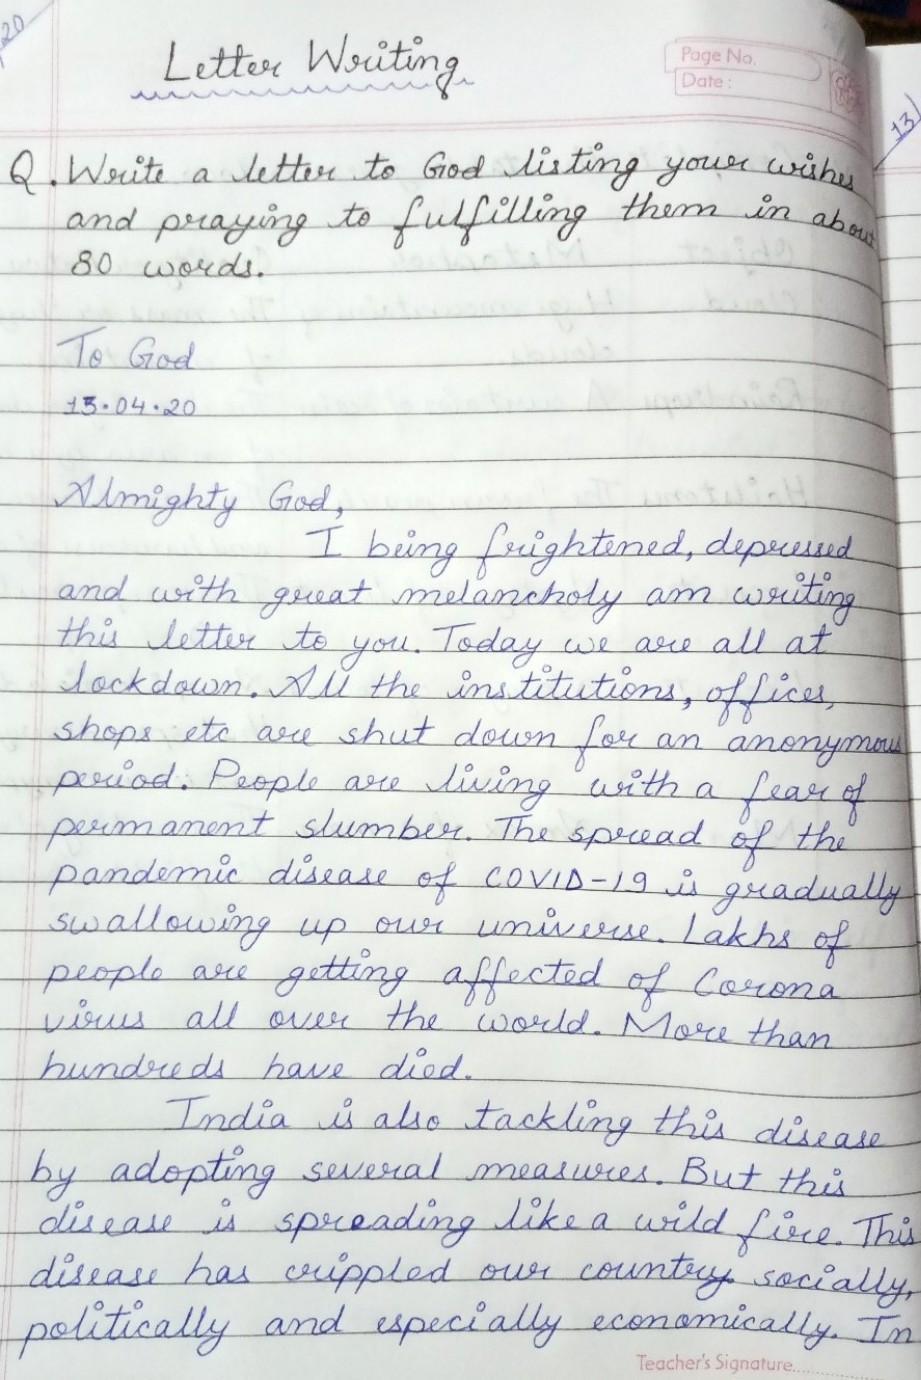 20
Letter Writing
Page No.
Date:
13
Q. Write a letter to God listing your wishes
and praying to fulfilling them in about
80 words.
To God
13.04.20
Almighty God,
I being frightened, depressed
and with great melancholy am writing
this letter to you. Today we are all at
lockdown. All the institutions, offices,
shops etc are shut down for an anonymous
period. People are living with a fear of
permanent slumber. The spread of the
pandemic disease of COVID-19 is gradually
swallowing up our universe. Lakhs of
people are getting affected of Corona
virus all over the world. More than
hundreds have died.
India is also tackling this disease
by adopting several measures. But this
disease is spreading like a wild fire. This
disease has crippled our country socially,
politically and especially economically. In
Teacher's Signature